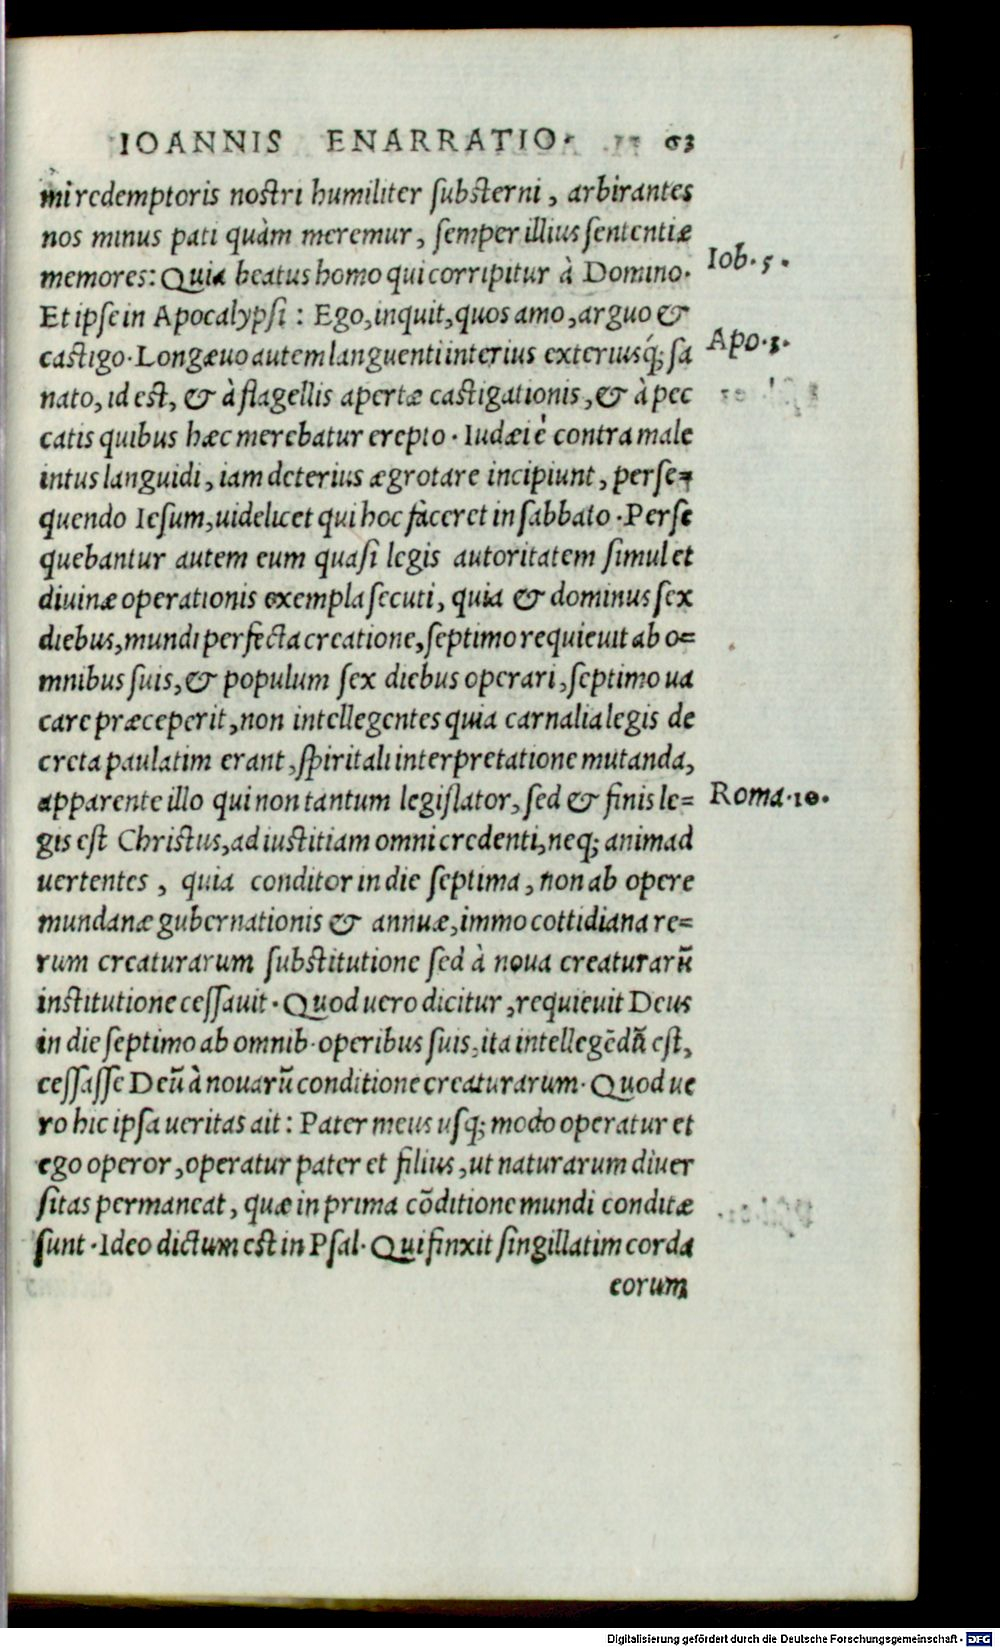 IOANNIS ENARRATIO. 63
mi redemptoris nostri humiliter substerni, arbirantes
nos minus pati quàm meremur, semper illius sententiæ
memores: Quia beatus homo qui corripitur à Domino.
Iob. 5.
Et ipse in Apocalypsi: Ego, inquit, quos amo, arguo &
castigo. Longæuo autem languenti interius exteriusq́; sa
Apo. 3.
nato, id est, & à flagellis apertæ castigationis, & à pec
catis quibus hæc merebatur erepto. Iudæi è contra male
intus languidi, iam deterius ægrotare incipiunt, perse=
quendo Iesum, uidelicet qui hoc faceret in sabbato. Perse
quebantur autem eum quasi legis autoritatem simul et
diuinæ operationis exempla secuti, quia & dominus sex
diebus, mundi perfecta creatione, septimo requieuit ab o=
mnibus suis, & populum sex diebus operari, septimo ua
care præceperit, non intellegentes quia carnalia legis de
creta paulatim erant, spiritali interpretatione mutanda,
apparente illo qui non tantum legislator, sed & finis le=
Roma. 10.
gis est Christus, ad iustitiam omni credenti, neq; animad
uertentes, quia conditor in die septima, non ab opere
mundanæ gubernationis & annuæ, immo cottidiana re=
rum creaturarum substitutione sed à noua creaturarū
institutione cessauit. Quod uero dicitur, requieuit Deus
in die septimo ab omnib. operibus suis, ita intellegēdū est,
cessasse Deū à nouarū conditione creaturarum. Quod ue
ro hic ipsa ueritas ait: Pater meus usq; modo operatur et
ego operor, operatur pater et filius, ut naturarum diuer
sitas permaneat, quæ in prima cōditione mundi conditæ
sunt. Ideo dictum est in Psal. Qui finxit singillatim corda
eorum
Digitalisierung gefördert durch die Deutsche Forschungsgemeinschaft - DFG